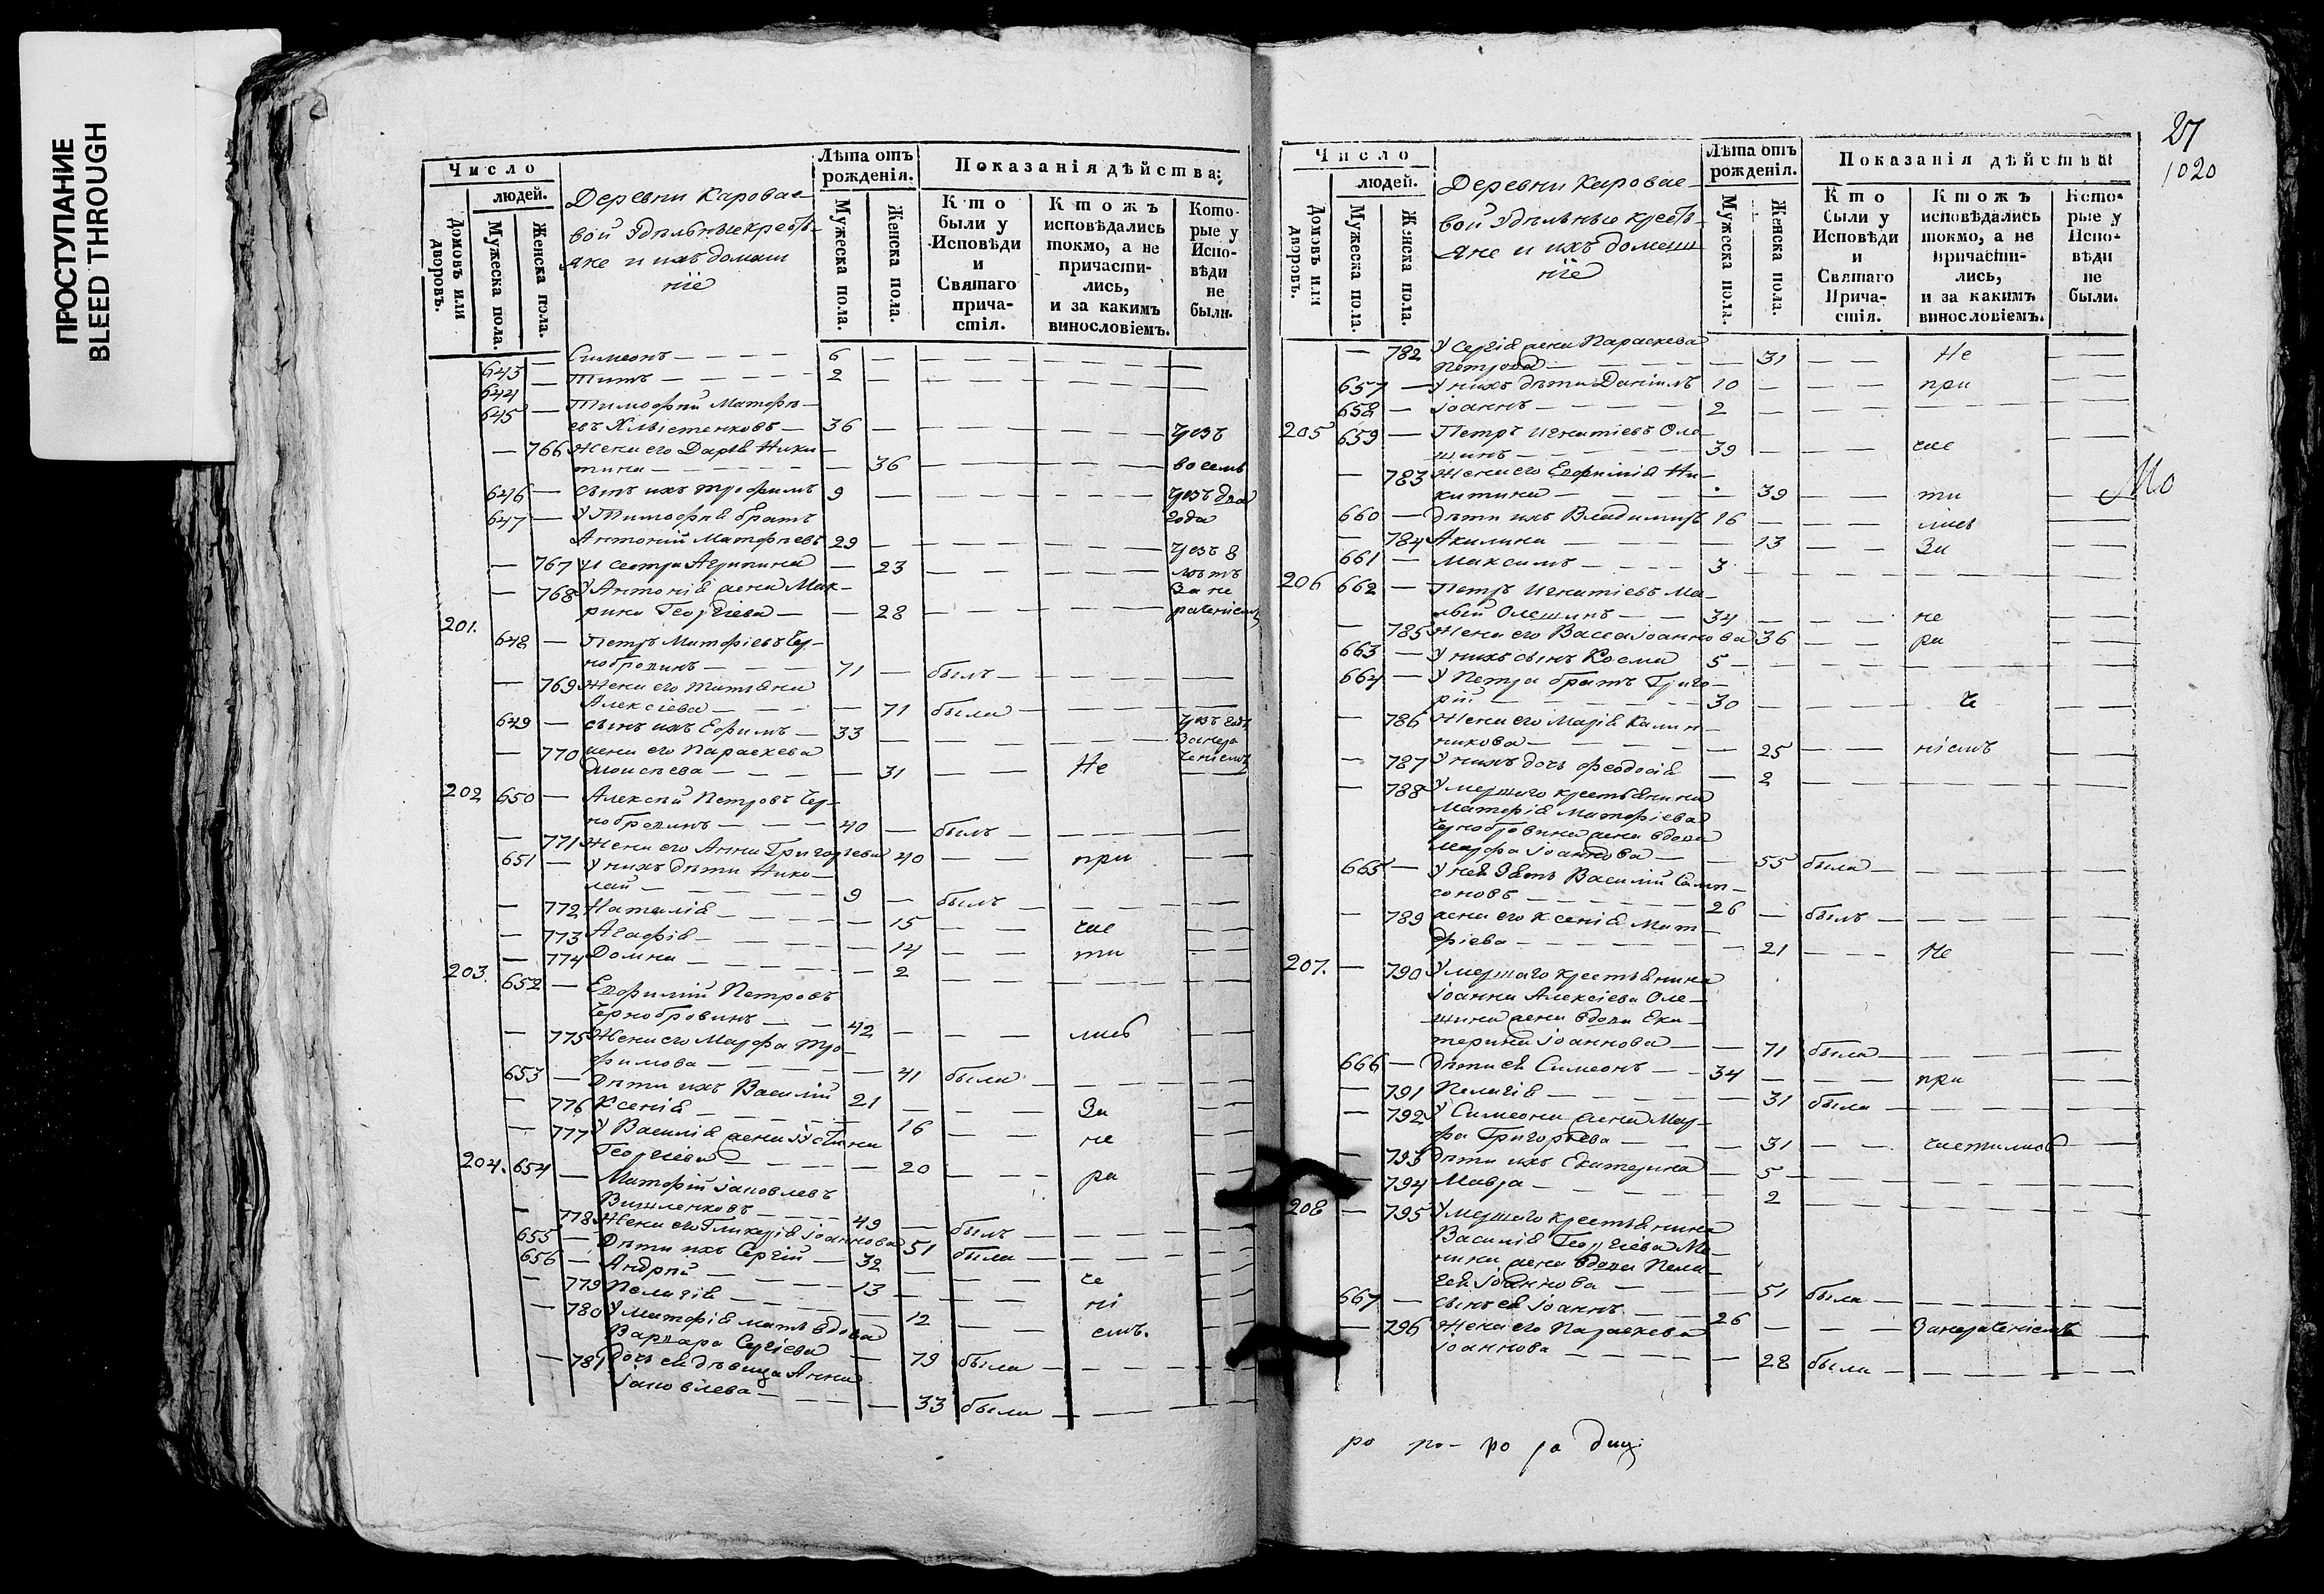 ПРОСТУПАНИЕ
BLEED THROUGH
Число
людей.
Домовъ или дворовъ.
Мужеска пола.
Женска пола.
Деревни Каровае-
вой Удѣльные крестья-
яне и ихъ домаш
ніе
Лѣта отъ рожденія.
Мужеска пола.
Женска пола.
Показанія дѣйства:
Кто были у Исповѣди и Святаго причастія.
Ктожъ исповѣдались токмо, а не причастились, и за какимъ винословіемъ.
Которые у Исповѣди не были.
643 — Симеонъ — 6
644 — Титъ — 2
645 — Тимофей Матфе-
евъ — 36 — чрезъ
— 766 Жена его Дарья Ники-
тина — 36 — восемь
646 — сынъ ихъ Трофимъ 9 — чрезъ два
647 — У Тимофея братъ года
Антоній Матфеевъ 29 — чрезъ 8
— 767 и сестра Агрипина — 23 — лѣтъ
— 768 У Антонія жена Мак- За не
рина Георгіева — 28 — раченіемъ
201.
648 — Петръ Матфіевъ Чер-
нобровинъ — 71 — былъ
— 769 Жена его Татьяна
Алексіева — 71 была
649 — сынъ ихъ Ефимъ — 33 — чрезъ годъ
Занера
— 770 жена его Параскева ченіемъ
Моисѣева — 31 — Не
202 650 — Алексѣй Петровъ Чер-
нобровинъ — 40 — былъ
— 771 Жена его Анна Григорьева 40 — при
651 — У нихъ дѣти Нико-
лай — 9 — былъ
— 772 Наталія — 15 — час
— 773 Агафія — 14 — ти
— 774 Домна — 2
203. 652 — Евфимій Петровъ
Чернобровинъ — 42 — лись
— 775 Жена его Марфа Тро-
фимова — 41 была
653 — Дѣти ихъ Василій 21 — За
— 776 Ксенія — 16 — не
— 777 У Василія жена Іустина
Георгіева — 20 — ра
204. 654 — Матфій Іаковлевъ
49 — былъ
— 778 Жена его Гликерія Іоаннова 51 была
655 — Дѣти ихъ Сергій — 32 — че
656 — Андрей — 13 — ні
— 779 Пелагія — 12 — емъ.
— 780 У Матфія мать вдова
Варвара Сергіева — 79 была
— 781 дочь ея дѣвица Анна
Іаковлева — 33 была
27
1020
Число
людей.
Домовъ или дворовъ.
Мужеска пола.
Женска пола.
Деревни Каровае-
вой Удѣльные крестъ-
яне и ихъ домаш
ніе
Лѣта отъ рожденія.
Мужеска пола.
Женска пола.
Показанія дѣйства
Кто были у Исповѣди и Святаго Причастія.
Ктожъ исповѣдались токмо, а не причастились, и за какимъ винословіемъ.
Которые у Исповѣди не были.
— 782 У Сергія жена Параскева
Петрова — 31 — Не
657 — У нихъ дѣти Даніилъ 10 — при
658 — Іоаннъ — 2
205 659 — Петръ Игнатіевъ Оле-
шинъ — 39 — час
— 783 Жена его Евфимія Ни-
китина — 39 — ти
Мо
660 — Дѣти ихъ Владимиръ 16 — лись
— 784 Акилина — 13 — За
661 — Максимъ — 3
206 662 — Петръ Игнатіевъ Ма-
лый Олешинъ — 34 — не
— 785 Жена его Васса Іоаннова 36 — ра
663 — У нихъ сынъ Косма 5
664 — У Петра братъ Григо-
рій — 30 — че
— 786 Жена его Марія Калин-
никова — 25 — ніемъ
— 787 У нихъ дочь Феодосія — 2
— 788 Умершаго крестьянина
Матфія Матфіева
Чернобровина жена вдова
Марфа Іоаннова — 55 была
665 — У нея зять Василій Самп-
соновъ — 26 — былъ
— 789 жена его Ксенія Мат-
фіева — 21 — Не
207. — 790 Умершаго крестьянина
Іоанна Алексіева Оле-
шина жена вдова Ека-
терина Іоаннова — 71 была
666 — Дѣти ея Симеонъ — 34 — при
— 791 Пелагія — 31 была
— 792 У Симеона жена Мар-
фа Григорьева — 31 — частились
— 793 Дѣти ихъ Екатерина — 5
— 794 Мавра — 2
208 — 795 Умершаго крестьянина
Василія Георгіева Ма-
нина жена вдова Пела-
гея Іоаннова — 51 была
667 — сынъ ея Іоаннъ — 26 — Занераченіемъ
— 796 Жена его Параскева
Іоаннова — 28 была